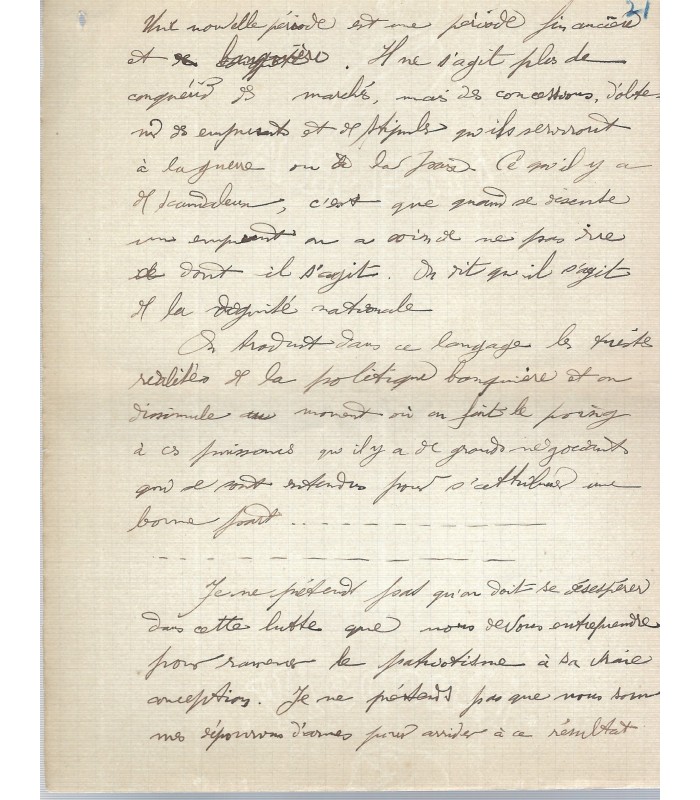 21
Une nouvelle période est une période financière
et banquière. Il ne s'agit plus de
conquérir des marchés, mais des concessions, d'obte-
nir des emprunts et de stipuler qu'ils serviront
à la guerre ou à la paix. Ce qu'il y a
de scandaleux, c'est que quand se discute
un emprunt on a soin de ne pas dire
ce dont il s'agit. On dit qu'il s'agit
de la dignité nationale
On traduit dans ce langage les tristes
réalités de la politique banquière et on
dissimule au moment où on fait le poing
à ces puissances qu'il y a de grands négociants
qui se sont entendus pour s'attribuer une
bonne part
Je ne prétends pas qu'on doit se désespérer
dans cette lutte que nous devons entreprendre
pour ramener le patriotisme à sa vraie
conception. Je ne prétends pas que nous som
mes dépourvus d'armes pour arriver à ce résultat